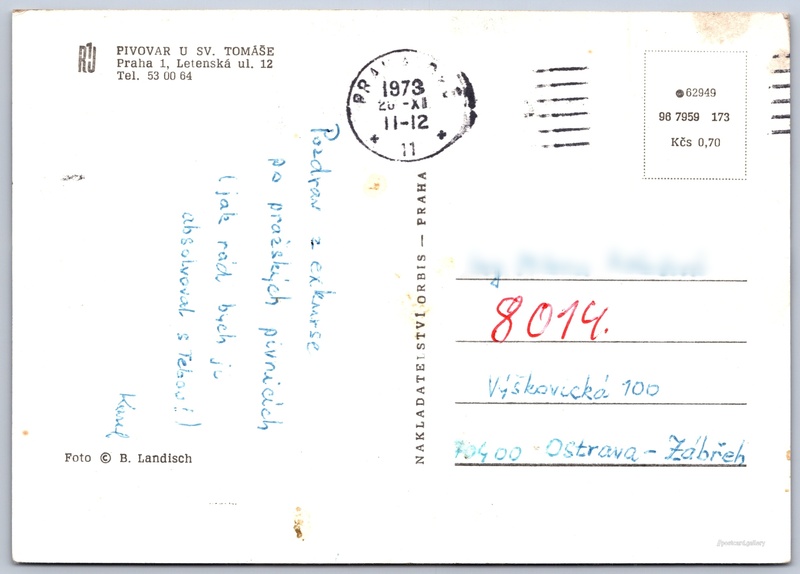 PIVOVAR U SV. TOMÁŠE
Praha 1, Letenská ul. 12
Tel. 53 00 64
PRAHA
1973
-XII
11-12
11
62949
96 7959 173
Kčs 0,70
Pozdrav z exkurse
po pražských pivnicích
(jak rád bych ju
absolvoval s Tebou!)
Karel
NAKLADATELSTVÍ ORBIS — PRAHA
8014.
Výškovická 100
70400 Ostrava-Zábřeh
Foto © B. Landisch
//postcard.gallery